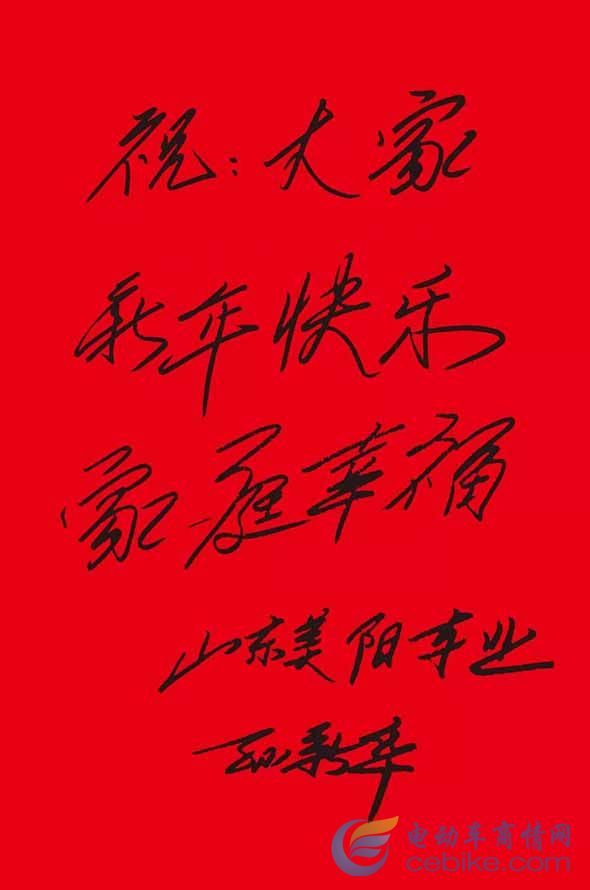 祝：大家
新年快乐
家庭幸福
山东美阳车业
电动车商情网
cebike.com